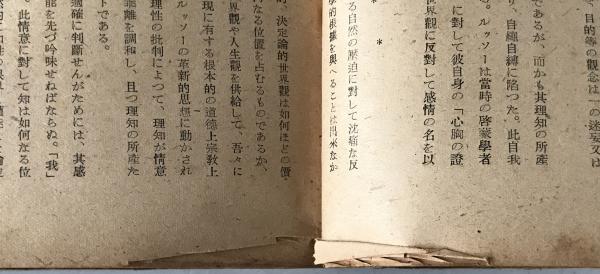 、目的等の觀念は一の迷妄又は
であるが、而かも其理知の所產
り、自繩自縛に陷つた。此自我
る。ルッソーは當時の啓蒙學者
に對して彼自身の「心胸の證
世界觀に反對して感情の名を以
＊
＊
る自然の壓迫に對して沈痛な反
學的根據を與へることは出來なか
、決定論的世界觀は如何ほどの價
なる位置を占むるものであるか、
界觀や人生觀を供給して、吾々に
現に有する根本的の道德上宗敎上
ルッソーの革新的思想に動かされ
理性の批判によつて、理知が情意
乖離を調和し、且つ理知の所產た
トである。
適確に判斷せんがためには、其感
能を先づ吟味せねばならぬ。「我」
。此情意に對して知は如何なる位